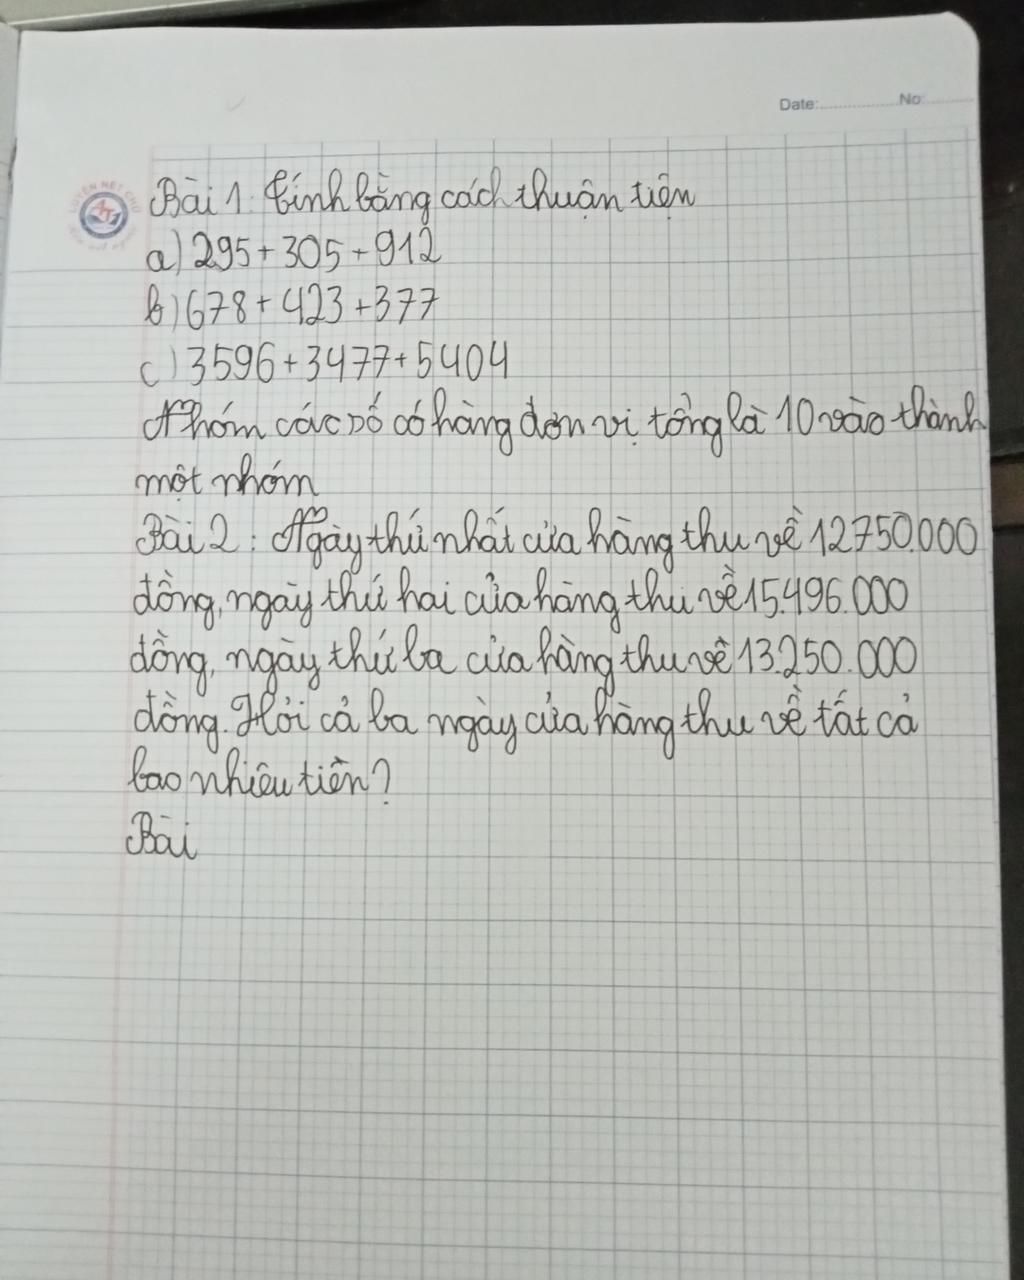 Date:..............No:..........
LUYỆN NÉT CHỮ
Bài 1: Tính bằng cách thuận tiện
a) 295 + 305 + 912
b) 678 + 423 + 377
c) 3596 + 3477 + 5404
Nhóm các số có hàng đơn vị tổng là 10 vào thành
một nhóm
Bài 2: Ngày thứ nhất cửa hàng thu về 12750.000
đồng, ngày thứ hai cửa hàng thu về 15.496.000
đồng, ngày thứ ba cửa hàng thu về 13.250.000
đồng. Hỏi cả ba ngày cửa hàng thu về tất cả
bao nhiêu tiền?
Bài